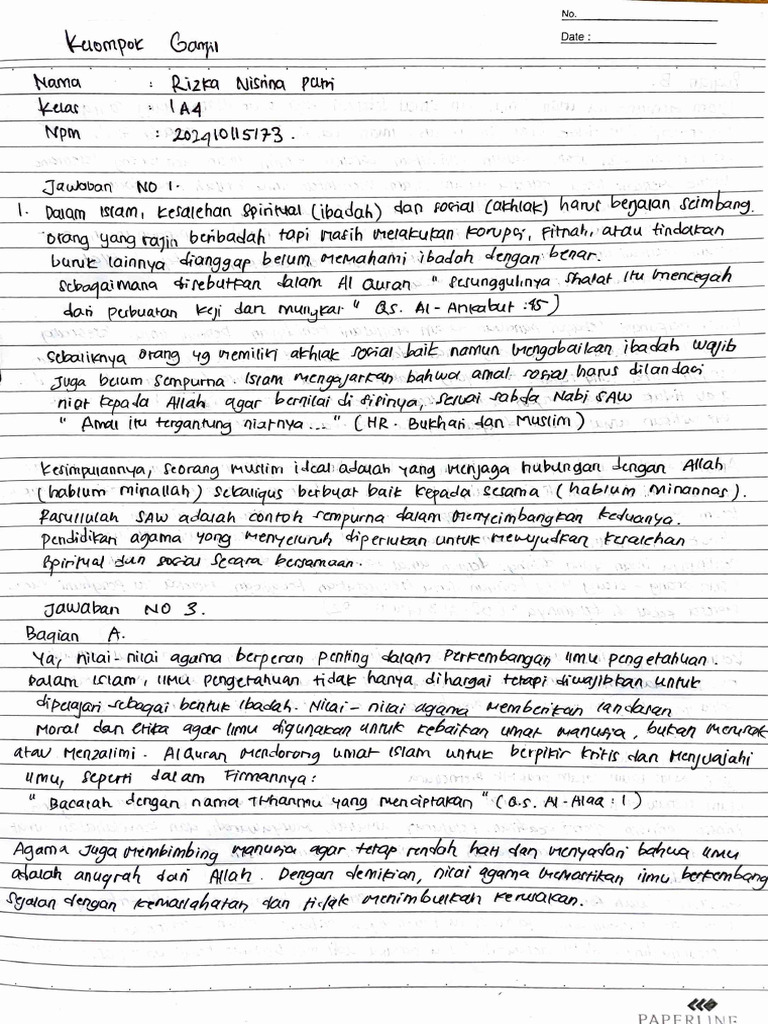 No.
Date :
Kelompok Ganjil
Nama : Rizka Nisrina Putri
Kelas : 1A4
Npm : 202410115173.
Jawaban NO 1.
1. Dalam Islam, kesalehan spiritual (ibadah) dan sosial (akhlak) harus berjalan seimbang.
Orang yang rajin beribadah tapi masih melakukan korupsi, fitnah, atau tindakan
buruk lainnya dianggap belum memahami ibadah dengan benar.
Sebagaimana disebutkan dalam Al Quran " Sesungguhnya shalat itu mencegah
dari perbuatan keji dan mungkar " Qs. Al-Ankabut :45)
Sebaliknya orang yg memiliki akhlak sosial baik namun mengabaikan ibadah wajib
juga belum sempurna. Islam mengajarkan bahwa amal sosial harus dilandasi
niat kepada Allah agar bernilai di sisinya, sesuai sabda Nabi SAW
" Amal itu tergantung niatnya..." (HR. Bukhari dan Muslim)
Kesimpulannya, seorang muslim ideal adalah yang menjaga hubungan dengan Allah
(hablum minallah) sekaligus berbuat baik kepada sesama (hablum minannas).
Rasulullah SAW adalah contoh sempurna dalam menyeimbangkan keduanya.
Pendidikan agama yang menyeluruh diperlukan untuk mewujudkan kesalehan
Spiritual dan sosial secara bersamaan.
Jawaban NO 3.
Bagian A.
Ya, nilai-nilai agama berperan penting dalam Perkembangan ilmu pengetahuan.
Dalam islam, ilmu pengetahuan tidak hanya dihargai tetapi diwajibkan untuk
dipelajari sebagai bentuk ibadah. Nilai-nilai agama memberikan landasan
Moral dan etika agar ilmu digunakan untuk kebaikan umat manusia, bukan merusak
atau Menzalimi. Al Quran mendorong umat Islam untuk berpikir kritis dan Menjelajahi
ilmu, seperti dalam Firmannya :
" Bacalah dengan nama Tuhanmu yang menciptakan " (Q.s. Al-Alaq : 1)
Agama juga membimbing manusia agar tetap rendah hati dan menyadari bahwa ilmu
adalah anugrah dari Allah. Dengan demikian, nilai agama memastikan ilmu berkembang
Sejalan dengan kemaslahatan dan tidak menimbulkan kerusakan.
PAPERLINE